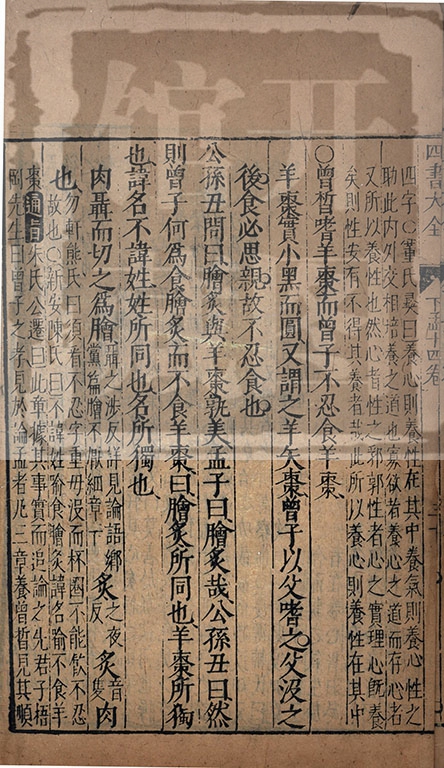 四書大全 下孟十四卷
四字○董氏彞曰養心則養性在其中養氣則養心性之
助此内外交相培養之道也寡欲者養心之道而存心者
又所以養性也然心者性之郛郭性者心之實理心旣養
矣則性安有不得其養者哉此所以養心則養性在其中
○曾晳嗜羊棗而曾子不忍食羊棗
羊棗實小黑而圓又謂之羊矢棗曾子以父嗜之父没之
後食必思親故不忍食也
公孫丑問曰膾炙與羊棗孰美孟子曰膾炙哉公孫丑曰然
則曾子何爲食膾炙而不食羊棗曰膾炙所同也羊棗所獨
也諱名不諱姓姓所同也名所獨也
肉聶而切之爲膾
聶之涉反詳見論語鄉
黨篇膾不厭細章下
炙
之夜
反
炙
音
隻
肉
也
勿軒熊氏曰須看不忍字重母没而杯圈不能飮不忍
故也○新安陳氏曰不諱姓喻食膾炙諱名喻不食羊
棗通旨朱氏公遷曰此章據其事實而追論之先君子梧
岡先生曰曾子之孝見於論孟者凡三章養曾晳見其順
開
館